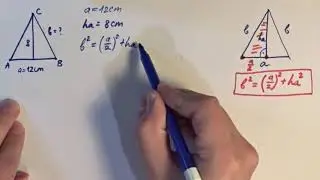 C
8
b=?
A
B
a=12cm
a=12cm
ha=8cm
b²=(a/2)²+ha
b
b
ha
a
a/2
b²=(a/2)²+ha²